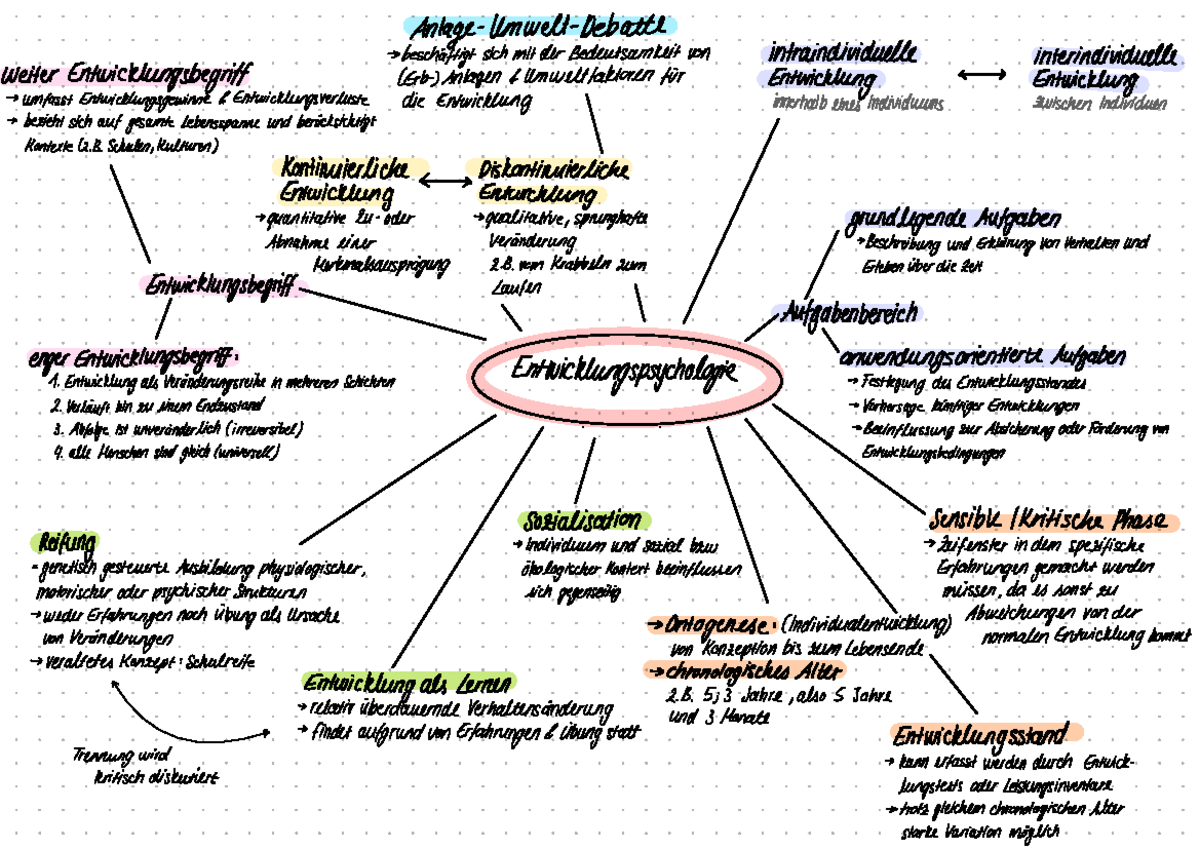 Anlage-Umwelt-Debatte
→ beschäftigt sich mit der Bedeutsamkeit von
(Erb-) Anlagen & Umweltfaktoren für
die Entwicklung
intraindividuelle
Entwicklung
innerhalb eines Individuums
interindividuelle
Entwicklung
zwischen Individuen
weiter Entwicklungsbegriff
→ umfasst Entwicklungsgewinne & Entwicklungsverluste
→ bezieht sich auf gesamte Lebensspanne und berücksichtigt
Kontexte (z.B. Schulen, Kulturen)
Kontinuierliche
Entwicklung
→ quantitative Zu- oder
Abnahme einer
Merkmalsausprägung
Diskontinuierliche
Entwicklung
→ qualitative, sprunghafte
Veränderung
z.B. vom Krabbeln zum
Laufen
grundlegende Aufgaben
→ Beschreibung und Erklärung von Verhalten und
Erleben über die Zeit
Entwicklungsbegriff
Aufgabenbereich
enger Entwicklungsbegriff:
1. Entwicklung als Veränderungsreihe in mehreren Schichten
2. Verläuft hin zu einem Endzustand
3. Abfolge ist unveränderlich (irreversibel)
4. alle Menschen sind gleich (universell)
Entwicklungspsychologie
anwendungsorientierte Aufgaben
→ Festlegung des Entwicklungsstandes
→ Vorhersage künftiger Entwicklungen
→ Beeinflussung zur Absicherung oder Förderung von
Entwicklungsbedingungen
Reifung
- genetisch gesteuerte Ausbildung physiologischer,
motorischer oder psychischer Strukturen
→ weder Erfahrungen noch Übung als Ursache
von Veränderungen
→ veraltetes Konzept: Schulreife
Sozialisation
→ Individuum und sozial bzw
ökologischer Kontext beeinflussen
sich gegenseitig
Sensible / Kritische Phase
→ Zeifenster in dem spezifische
Erfahrungen gemacht werden
müssen, da es sonst zu
Abweichungen von der
normalen Entwicklung kommt
→ Ontogenese: (Individualentwicklung)
von Konzeption bis zum Lebensende
→ chronologisches Alter
z.B. 5;3 Jahre, also 5 Jahre
und 3 Monate
Entwicklung als Lernen
→ relativ überdauernde Verhaltensänderung
→ findet aufgrund von Erfahrungen & Übung statt
Trennung wird
kritisch diskutiert
Entwicklungsstand
→ kann erfasst werden durch Entwick-
lungstests oder Leistungsinventare
→ trotz gleichem chronologischen Alter
starke Variation möglich